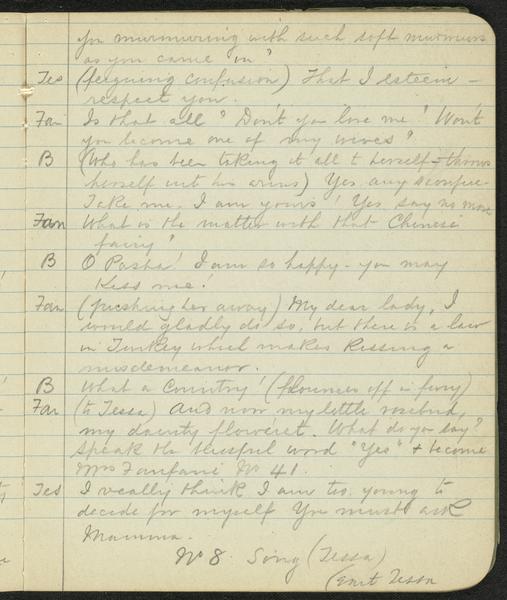 you murmuring with such soft murmurs
as you came in?
Tes (feigning confusion) That I esteem -
respect you.
Fan Is that all? Don't you love me! Won't
you become one of my wives?
B (Who has been taking it all to herself + throws
herself into his arms) Yes any sacrifice -
Take me. I am yours! Yes, say no more
Fan What is the matter with that Chinese
fairy?
B O Pasha! I am so happy - you may
Kiss me!
Fan (pushing her away) My dear lady, I
would gladly do so, but there is a law
in Turkey which makes Kissing a
misdemeanor.
B What a Country! (flounces off in fury)
Fan (to Tessa) And now my little rosebud,
my dainty floweret. What do you say?
Speak the blissful word "Yes" + become
Mrs Fanfani No 41.
Tes I really think I am too young to
decide for myself You must ask
Mamma.
No 8. Song (Tessa)
(Exit Tessa